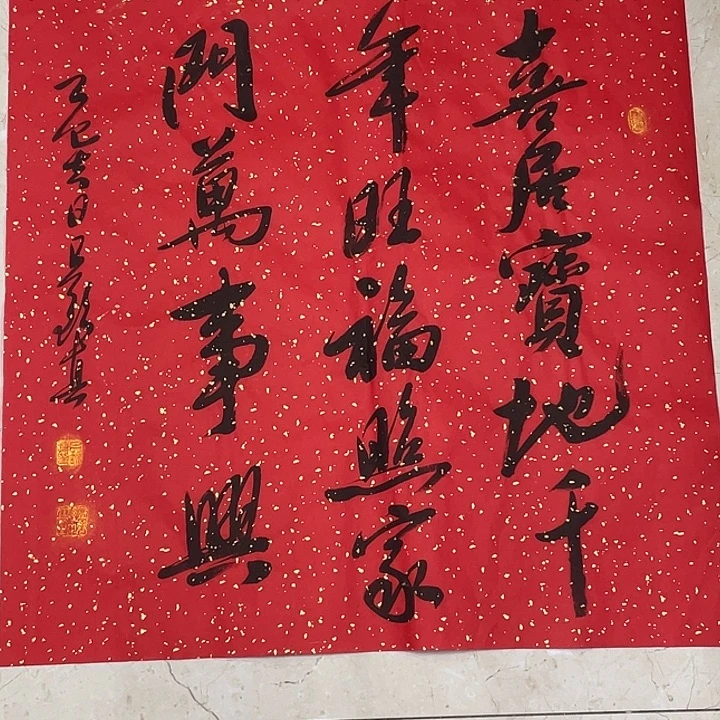 喜居寶地千
年旺福照家
門萬事興
乙巳吉日